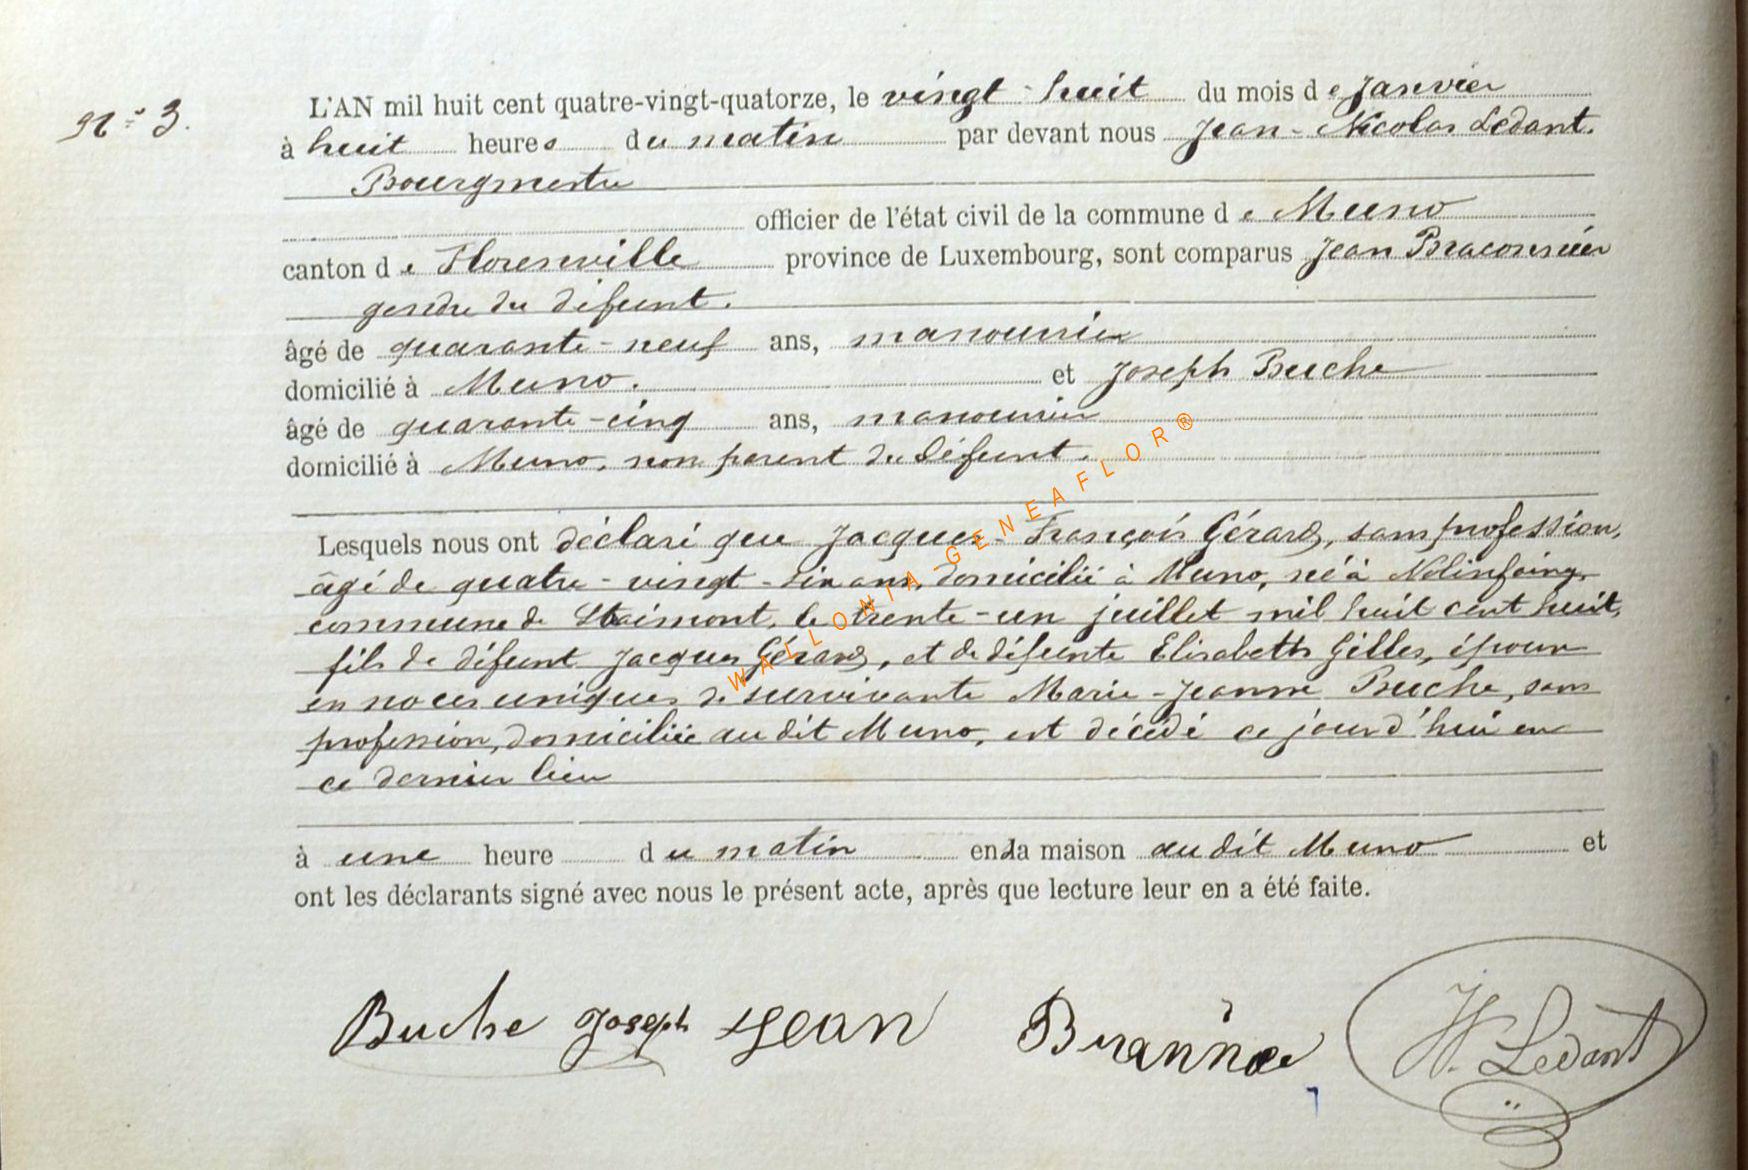 Nº 3.
L'AN mil huit cent quatre-vingt-quatorze, le vingt-huit du mois de Janvier
à huit heures du matin par devant nous Jean-Nicolas Ledant.
Bourgmestre
officier de l'état civil de la commune de Muno
canton de Florenville province de Luxembourg, sont comparus Jean Braconnier
gendre du défunt.
âgé de quarante-neuf ans, manouvrier
domicilié à Muno. et Joseph Buche
âgé de quarante-cinq ans, manouvrier
domicilié à Muno, non parent du défunt.
Lesquels nous ont déclaré que Jacques-François Gérard, sans profession,
âgé de quatre-vingt-six ans, domicilié à Muno, né à Nolinfaing,
commune de Straimont, le trente-un juillet mil huit cent huit,
fils de défunt Jacques Gérard, et de défunte Elisabeth Gilles, époux
en noces uniques de survivante Marie-Jeanne Buche, sans
profession, domiciliée au dit Muno, est décédé ce jourd'hui en
ce dernier lieu
à une heure du matin en sa maison au dit Muno et
ont les déclarants signé avec nous le présent acte, après que lecture leur en a été faite.
Buche Joseph Jean Ledant
WALLONIA-GENEAFLOR®